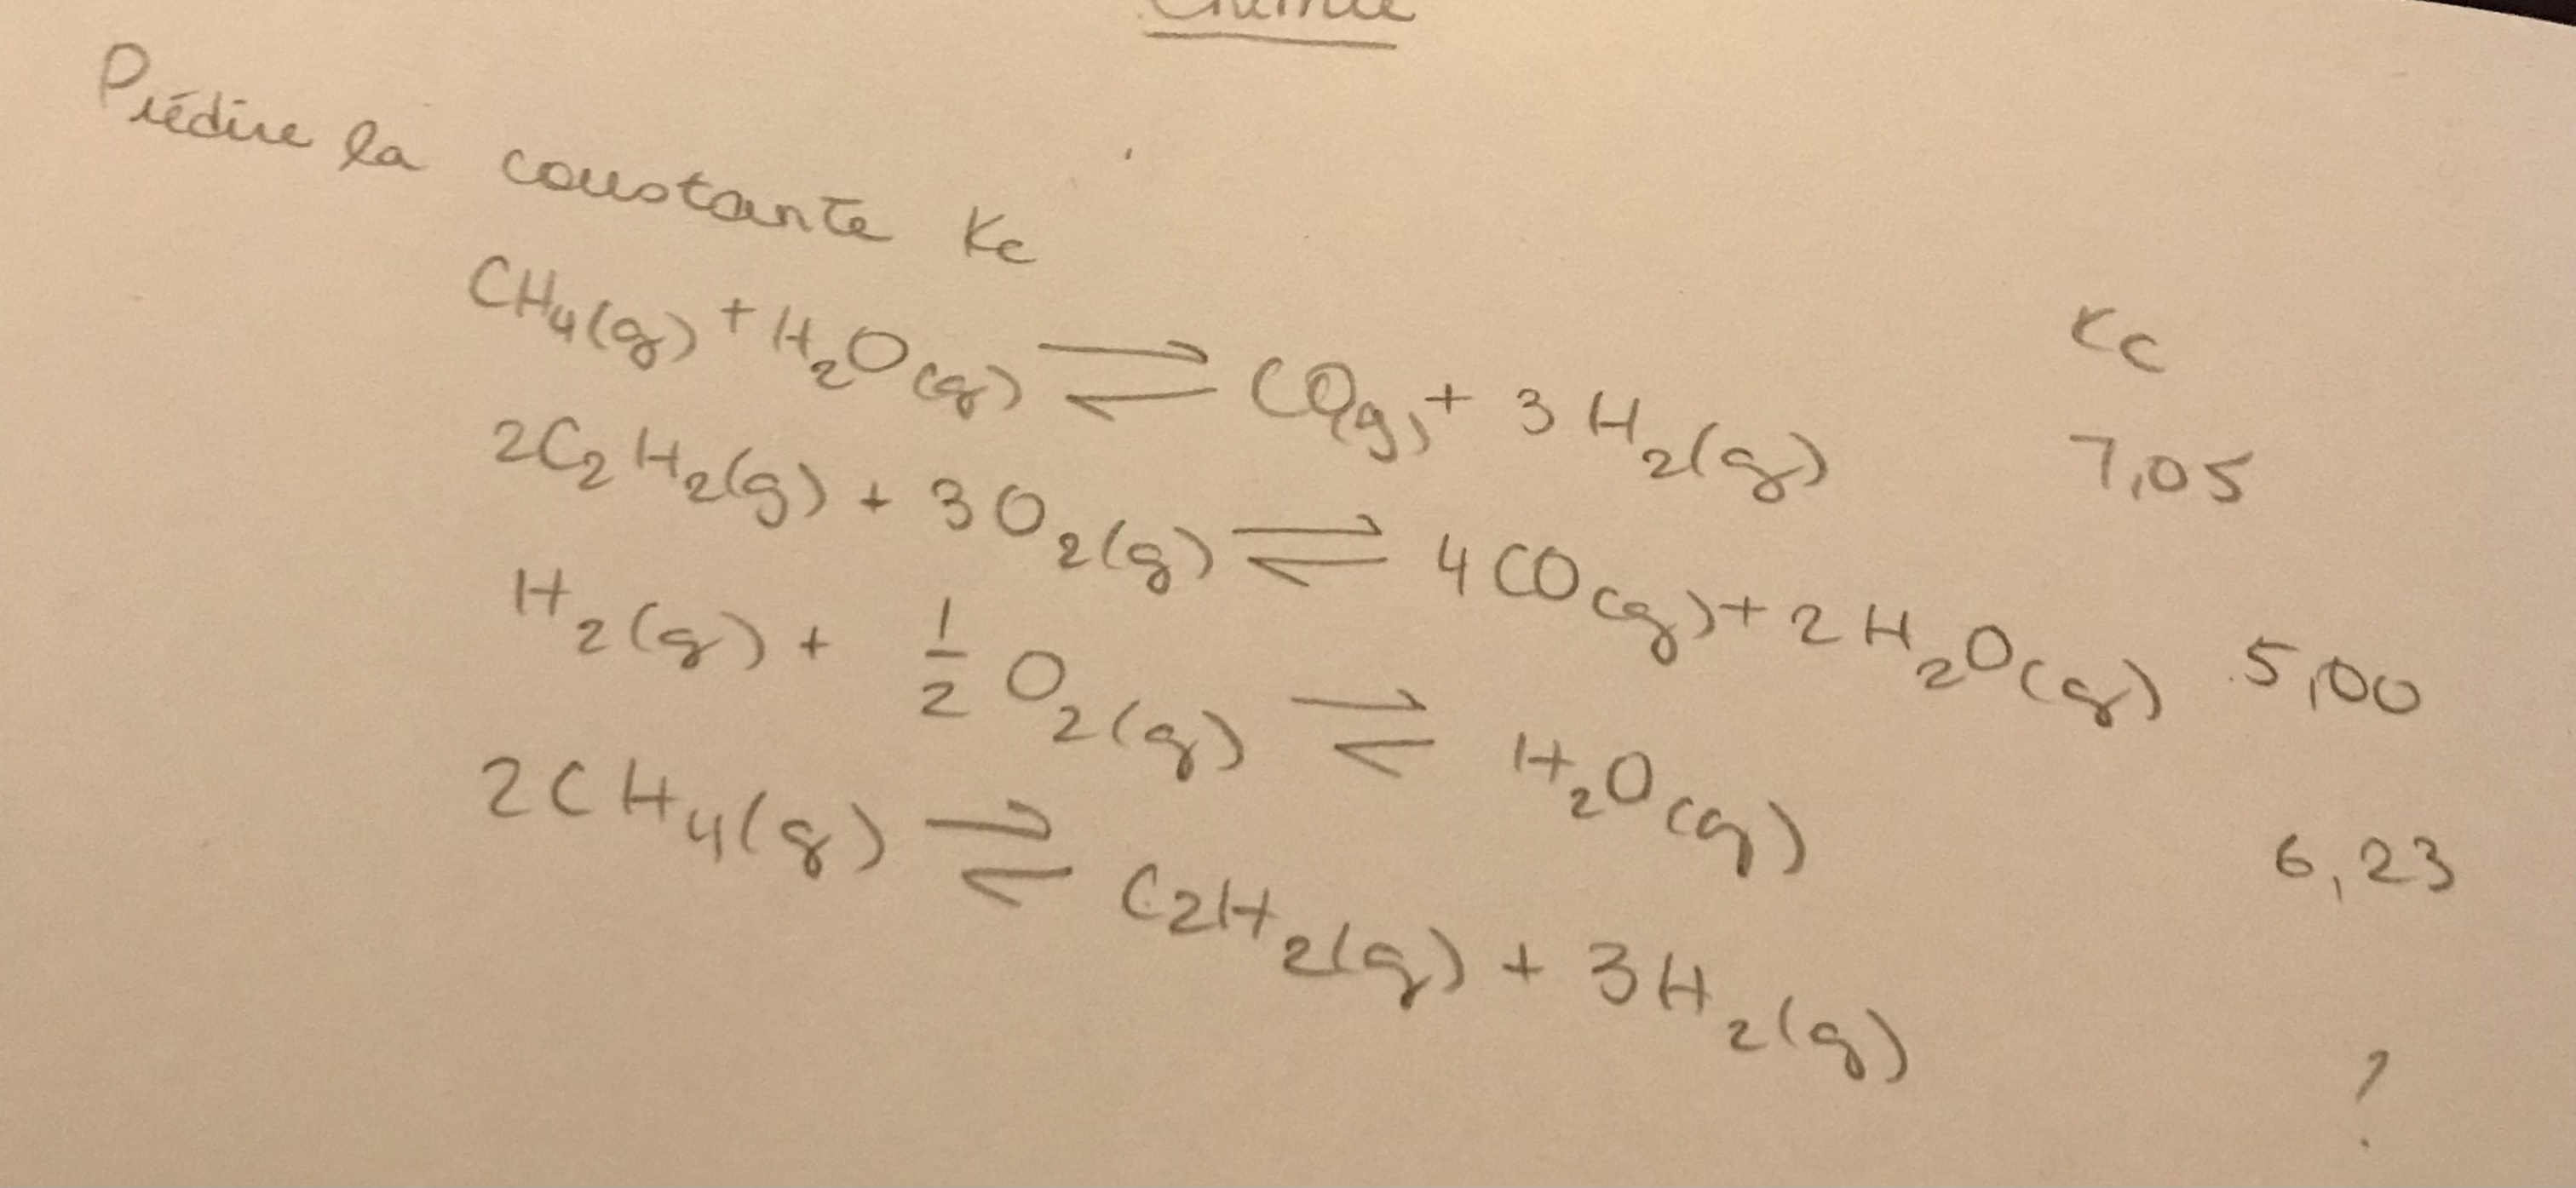 Chimie
Prédire la constante Kc
Kc
CH₄(g) + H₂O(g) ⇌ CO(g) + 3 H₂(g) 7,05
2C₂H₂(g) + 3O₂(g) ⇌ 4CO(g) + 2H₂O(g) 5,00
H₂(g) + 1/2 O₂(g) ⇌ H₂O(g) 6,23
2CH₄(g) ⇌ C₂H₂(g) + 3H₂(g) ?